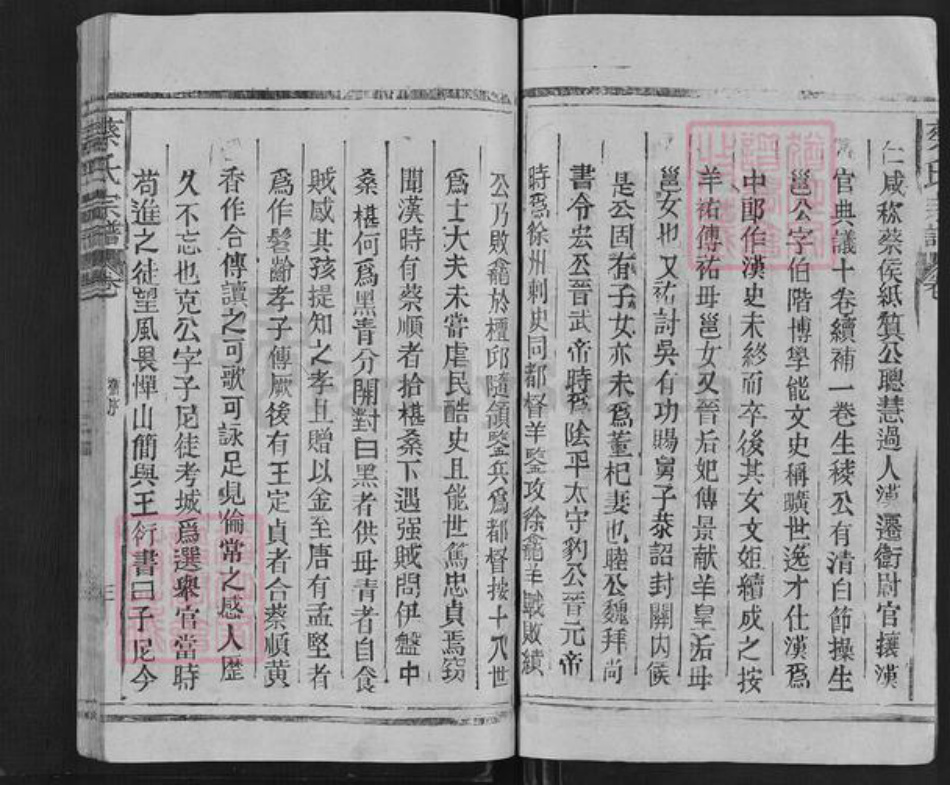 仁咸称蔡侯紙篔公聰慧過人漢遷衛尉官攘漢
官典議十卷續補一卷生稜公有清白節操生
邕公字伯階博學能文史稱曠世逸才仕漢爲
中郎作漢史未終而卒後其女文姫續成之按
羊祐傳祐母邕女又晉后妃傳景献羊皇后母
邕女也又祐討吳有功賜舅子蔡詔封關内侯
是公固有子女亦未爲董杞妻也睦公魏拜尚
書令宏公晉武帝時爲陰平太守豹公晉元帝
時爲徐州刺史同都督羊鑒攻徐龕羊戰敗績
公乃敗龕於檀邱隨領鑒兵爲都督按十八世
爲士大夫未當虐民酷史且能世篤忠貞焉窃
聞漢時有蔡順者拾椹桑下遇强賊問伊盤中
桑椹何爲黑青分開對曰黑者供母青者自食
賊感其孩提知之孝且贈以金至唐有孟堅者
爲作髫齡孝子傳厥後有王定貞者合蔡順黄
香作合傳讀之可歌可詠足覘倫常之感人歴
久不忘也克公字子尼徒考城爲選舉官當時
苟進之徒望風畏憚山簡與王衍書曰子尼今
蔡氏宗譜
卷
舊序
三